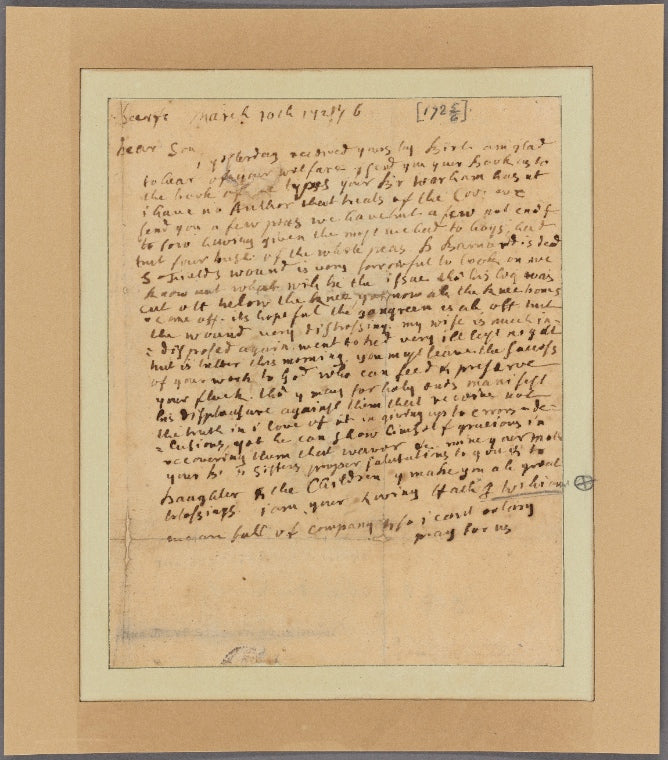 March 10th 1725/6 [172 5/6]
Dear Son
I yesterday received yours by Birk am glad
to hear of your welfare I send you your Book as to
the book of types your Br
i have no Author that treats of the
send you a few peas we have but a few
to sow having given the most we had to hogs, had
but four bush of the whole peas B Barnard is dead
wound is very sorrowful to look on we
know not what will be the issue tho his leg was
cut off below the knee, yet now all the knee bone
come off. its hopeful the gangreen is all off but
the wound very distressing. my wife is much in
= disposed again. went to bed very ill last night
but is better this morning you must leave the success
of your work to God who can feed & preserve
your flock, tho he may for holy ends manifest
his displeasure against them that receive not
the truth in love of it in giving up to errors & de
= lusions, yet he can show himself gracious in
recovering them that waver mine your
your Br Sisters proper salutations to you & to
Daughter & the Children make you all great
blessings. i am your loving ffath
we are full of company so i cant enlarg
pray for us